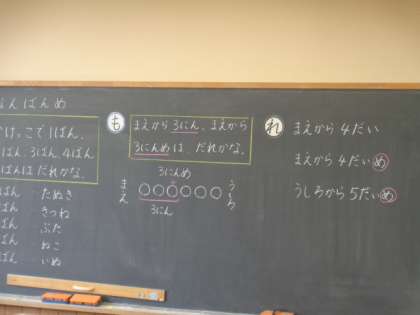 なんばんめ
かけっこで 1ばん、
2ばん、3ばん、4ばん
5ばんは だれかな。
ばん たぬき
ばん きつね
ばん ぶた
ばん ねこ
ばん いぬ
も
まえから 3にん、まえから
3にんめは、だれかな。
3にんめ
まえ
うしろ
3にん
れ
まえから 4だい
まえから 4だいめ
うしろから 5だいめ